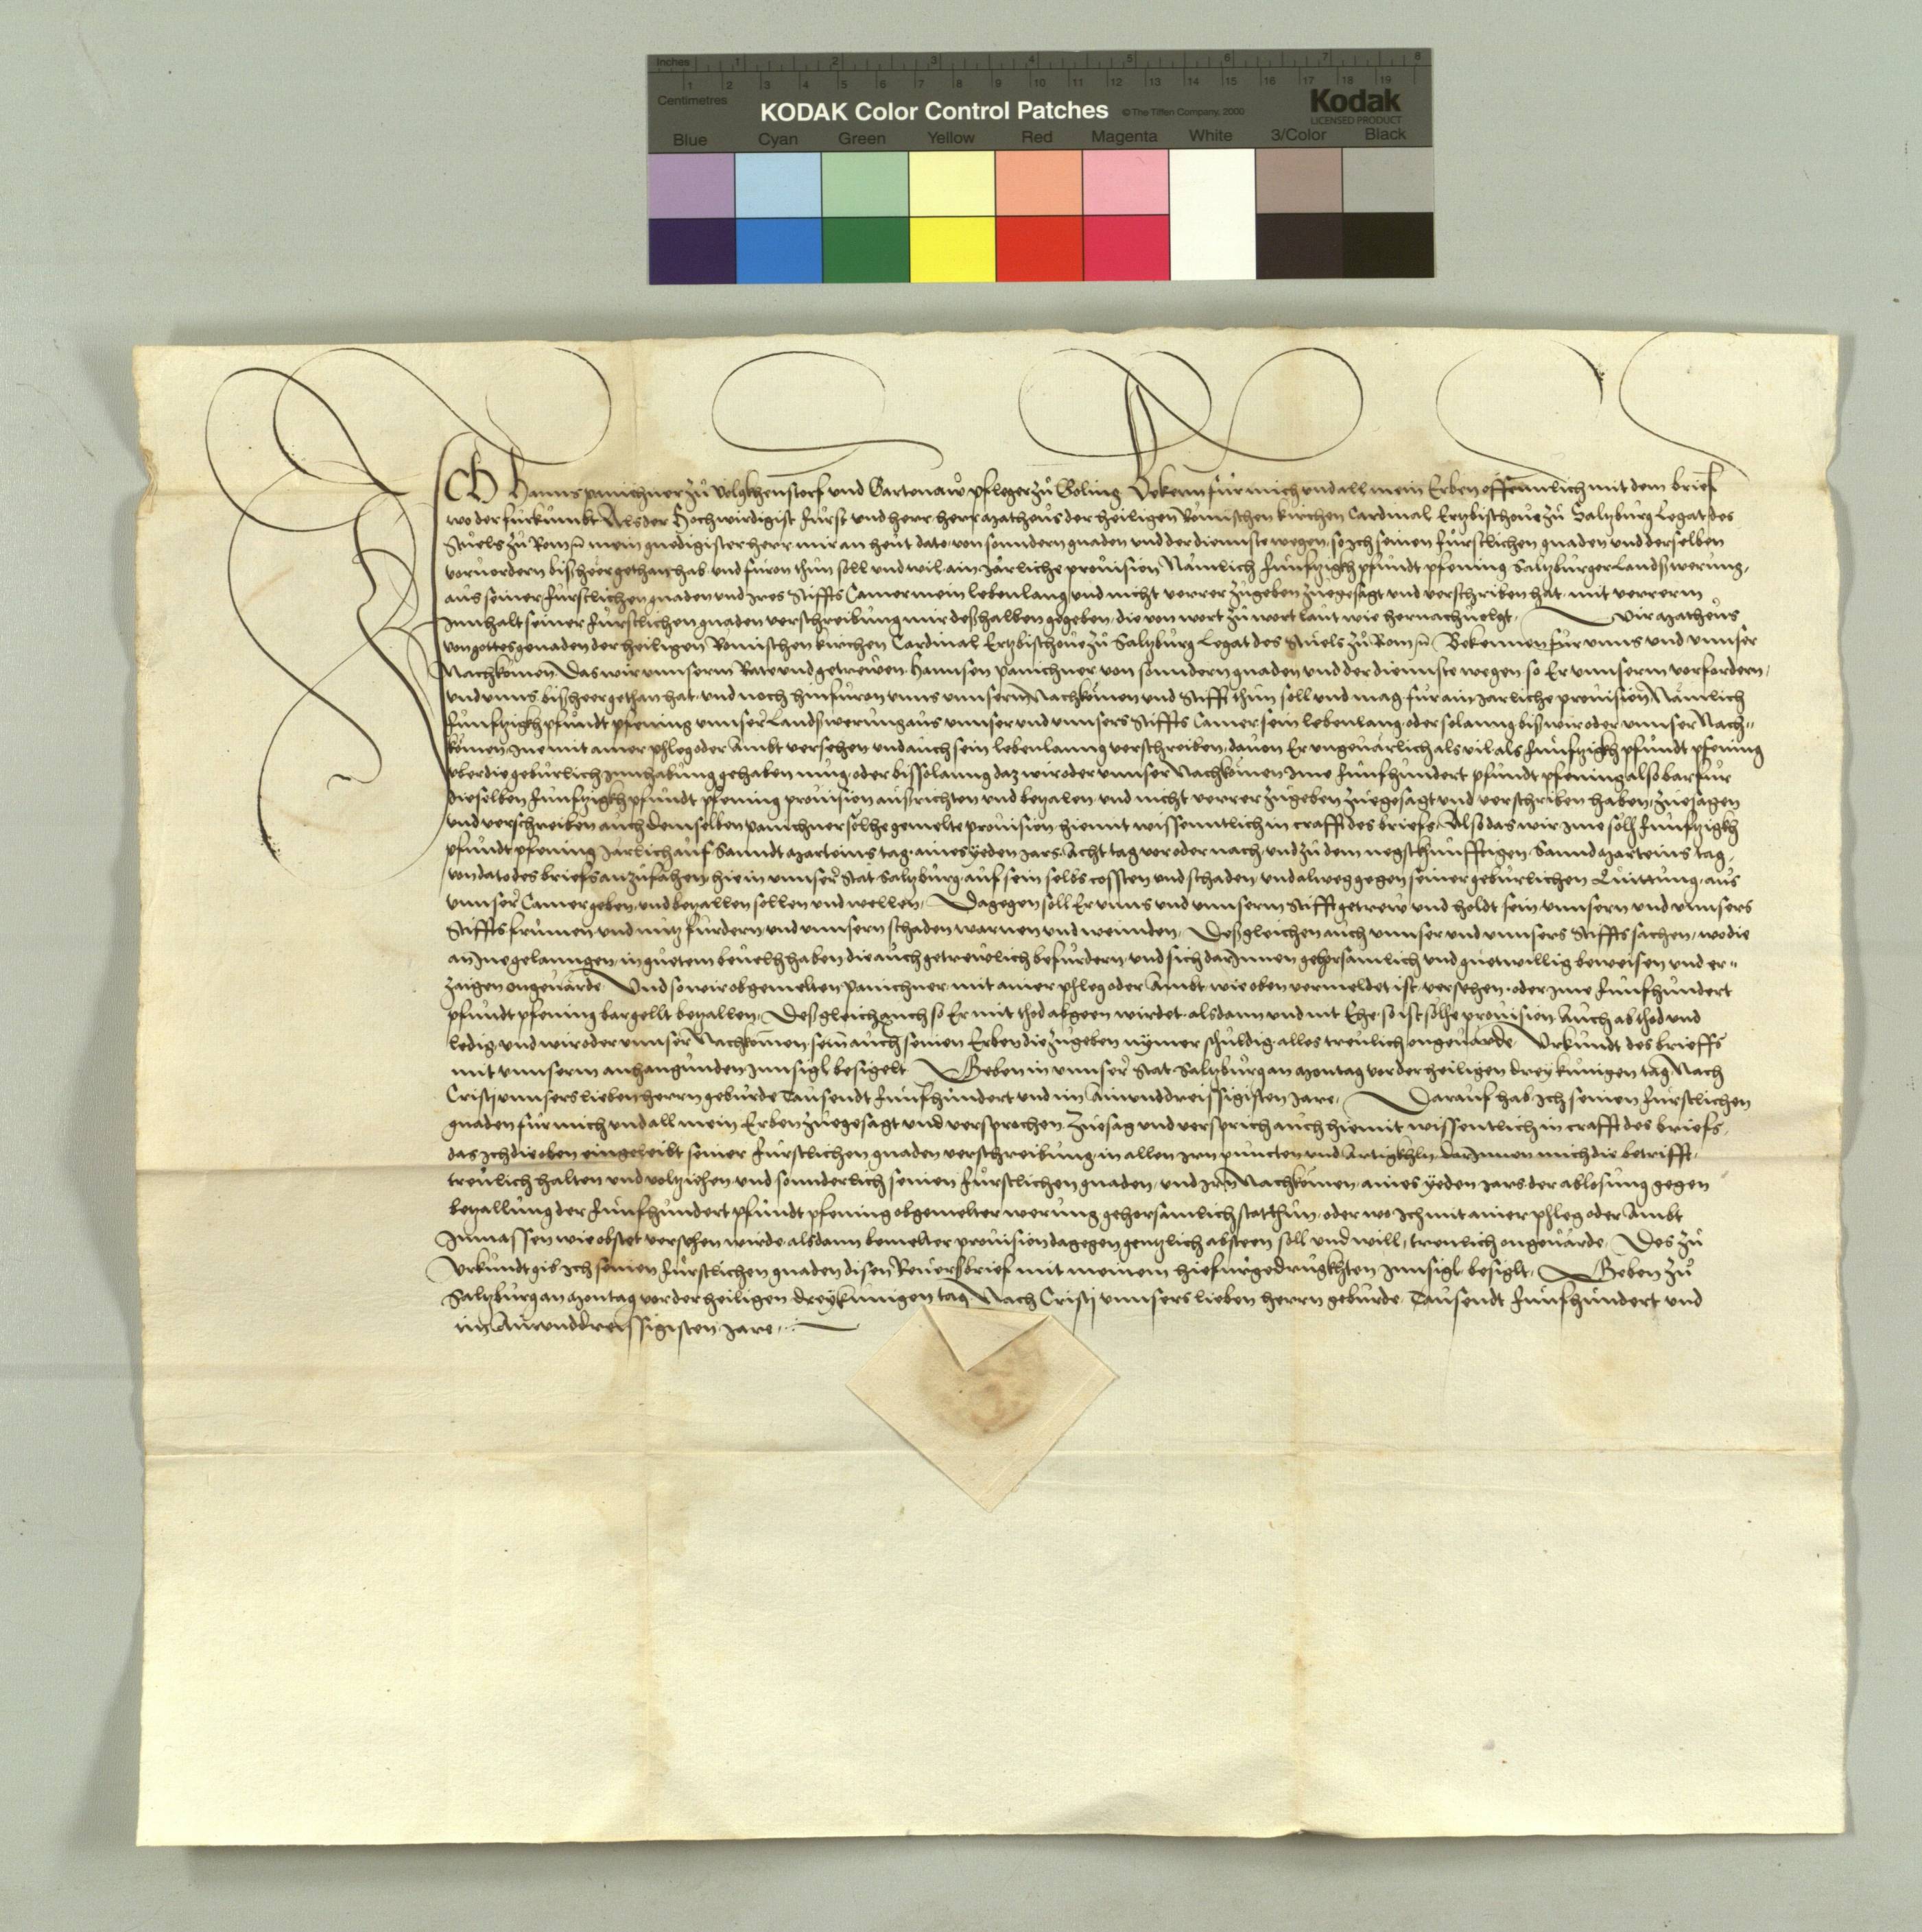 Inches 1 2 3 4 5 6 7 8
1 2 3 4 5 6 7 8 9 10 11 12 13 14 15 16 17 18 19
Centimetres
KODAK Color Control Patches © The Tiffen Company, 2000 Kodak
LICENSED PRODUCT
Blue Cyan Green Yellow Red Magenta White 3/Color Black
Ich Hanns Panichner zů Volgkhenstorf und Gartenaw pfleger zů Goling Bekenn für mich und all mein Erben offenntlich mit dem brief
wo der fürkumbt Als der Hochwirdigist Fürst und herr herr Matheus der heiligen Römischen kirchen Cardinal Ertzbischove zů Saltzburg Legat des
Stuels zů Rom mein gnedigister herr mir an heut dato von sonndern gnaden und der diennste wegen so ich seinen fürstlichen gnaden und derselben
vorvordern bißheer gethan hab und füron thun soll und wil ain Järliche provision Nämlich Fünfftzigkh pfundt pfening Saltzburger Landßwerung,
aus seiner fürstlichen gnaden und Ires Stiffts Camer mein lebenlang und nicht verrer zůgeben zuegesagt und verschriben hat mit verrerm
Innhalt seiner fürstlichen gnaden verschreibung mir deßhalben gegeben die von wort zu wort laut wie hernachvolgt. Wir Matheus
von gottes genaden der heiligen Römischen kirchen Cardinal Ertzbischove zů Saltzburg Legat des Stuels zů Rom Bekennen für unns und unnser
Nachkömen Das wir unnserm Rate und getrewen Hannsen Panichner von sonndern gnaden und der diennste wegen so Er unnserm vorfordern,
und unns bißheer gethan hat und noch hinfüron unns unnsern Nachkömen und Stifft thun soll und mag für ain Järliche provision Nämlich
fünfftzigkh pfundt pfening unnser Landßwerung aus unnser und unnsers Stiffts Camer sein lebenlang oder solanng biß wir oder unnser Nach-
kömen Ine mit ainer phleg oder Ambt versehen und auch sein lebenlanng verschreiben, davon Er ungevärlich als vil als fünfftzigkh pfundt pfening
über die gebürlich Innhabung gehaben mug, oder bissolanng daz wir oder unnser Nachkömen Ime Fünfhundert pfundt pfening also bar für
dieselben fünfftzigkh pfundt pfening provision außrichten und betzalen und nicht verrer zůgeben zuegesagt und verschriben haben, zuesagen
und verschreiben auch demselben Panichner solhe gemelte provision hiemit wissenntlich in crafft des briefs, Also das wir Ime solh fünfftzigkh
pfundt pfening Järlich auf Sanndt Marteins tag aines yeden Jars Acht tag vor oder nach und zů dem negstkünfftigen Sannd Marteins tag,
von dato des briefs anzůfahen hie in unnser Stat Saltzburg auf sein selbs cossten und schaden und alweg gegen seiner gebürlichen Quittung, aus
unnser Camer geben und betzallen sollen und wellen, Dagegen soll Er unns und unnserm Stifft getrew und holdt sein unnsern und unnsers
Stiffts frumen und nutz fürdern und unnsern schaden warnen und wennden, Deßgleichen auch unnser und unnsers Stiffts sachen, wo die
an Ine gelanngen, in guetem bevelhh haben die auch getreulich befürdern und sich darInnen gehorsamlich und guetwillig beweisen und er-
zaigen ongevärde Und so wir obgemelten Panichner mit ainer phleg oder Ambt wie oben vermeldet ist versehen oder Ime Fünfhundert
pfundt pfening bar gellt betzallen, Deßgleich auch so Er mit thod abgeen wirdet alsdann und nit Ehe so ist solhe provision Auch ab thod und
ledig und wir oder unnser Nachkömen sein auch seinen Erben die zůgeben nymer schuldig alles treulich ongevärde Urkundt des brieffs
mit unnserm anhangunden Innsigl besigelt Geben in unnser Stat Saltzburg an Montag vor der heiligen drey kunigen tag Nach
Cristi unnsers lieben herrn geburde Tausendt Fünfhundert und im Ainunddreissigisten Jare, Darauf hab Ich seinen fürstlichen
gnaden für mich und all mein Erben zuegesagt und versprochen Zuesag und versprich auch hiemit wissentlich in crafft des briefs,
das Ich die oben eingeleibt seiner fürstlichen gnaden verschreibung in allen Irn puncten und Artigkhln darInnen mich die betrifft,
treulich halten und voltziehen und sonnderlich seinen fürstlichen gnaden, und Irn Nachkömen, aines yeden Jars der ablosung gegen
betzallung der Fünfhundert pfundt pfening obgemelter werung gehorsamlich stat thun, oder wo Ich mit ainer phleg oder Ambt
Inmassen wie obstet versehen würde, alsdann bemelter provision dagegen genntzlich absteen soll und will, treulich ongevärde, Des zů
Urkundt gib Ich seinen fürstlichen gnaden disen Reversbrief mit meinem hiefürgedrugkhten Innsigl besiglt, Geben zů
Saltzburg an Montag vor der heiligen dreykunigen tag Nach Cristi unnsers lieben herrn geburde Tausendt Fünfhundert und
im Ainunddreissigisten Jare.